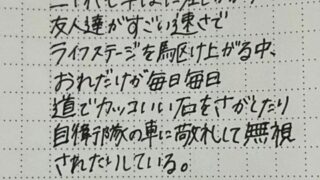 友人達がすごい速さで
ライフステージを駆け上がる中、
おれだけが毎日毎日
道でカッコいい石をさがしたり
自衛隊の車に敬礼して無視
されたりしている。